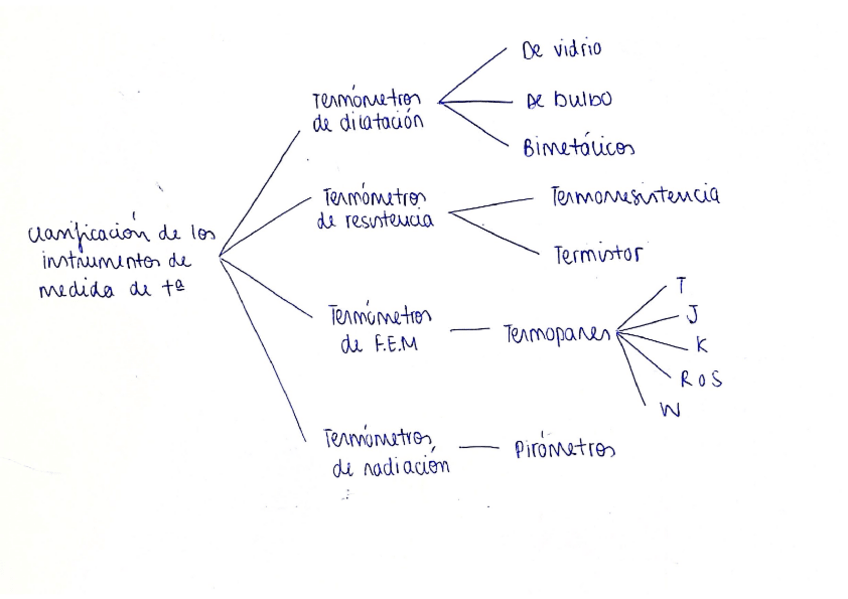 Clasificación de los
instrumentos de
medida de tª
Termómetros
de dilatación
De vidrio
De bulbo
Bimetálicos
Termómetros
de resistencia
Termorresistencia
Termistor
Termómetros
de F.E.M
Termopares
T
J
K
R o S
W
Termómetros
de radiación
Pirómetros